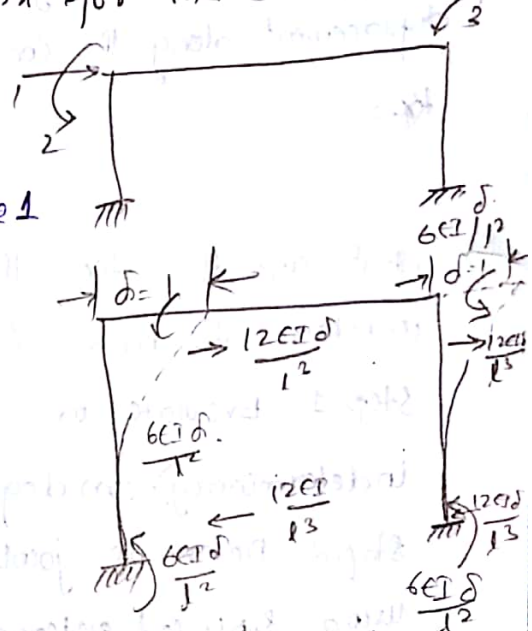 3
1
2
1
δ.
6EI/l²
δ=1
δ=1
12EIδ/l²
12EIδ/l³
6EIδ/l²
12EI/l³
12EIδ/l³
6EIδ/l²
6EIδ/l²